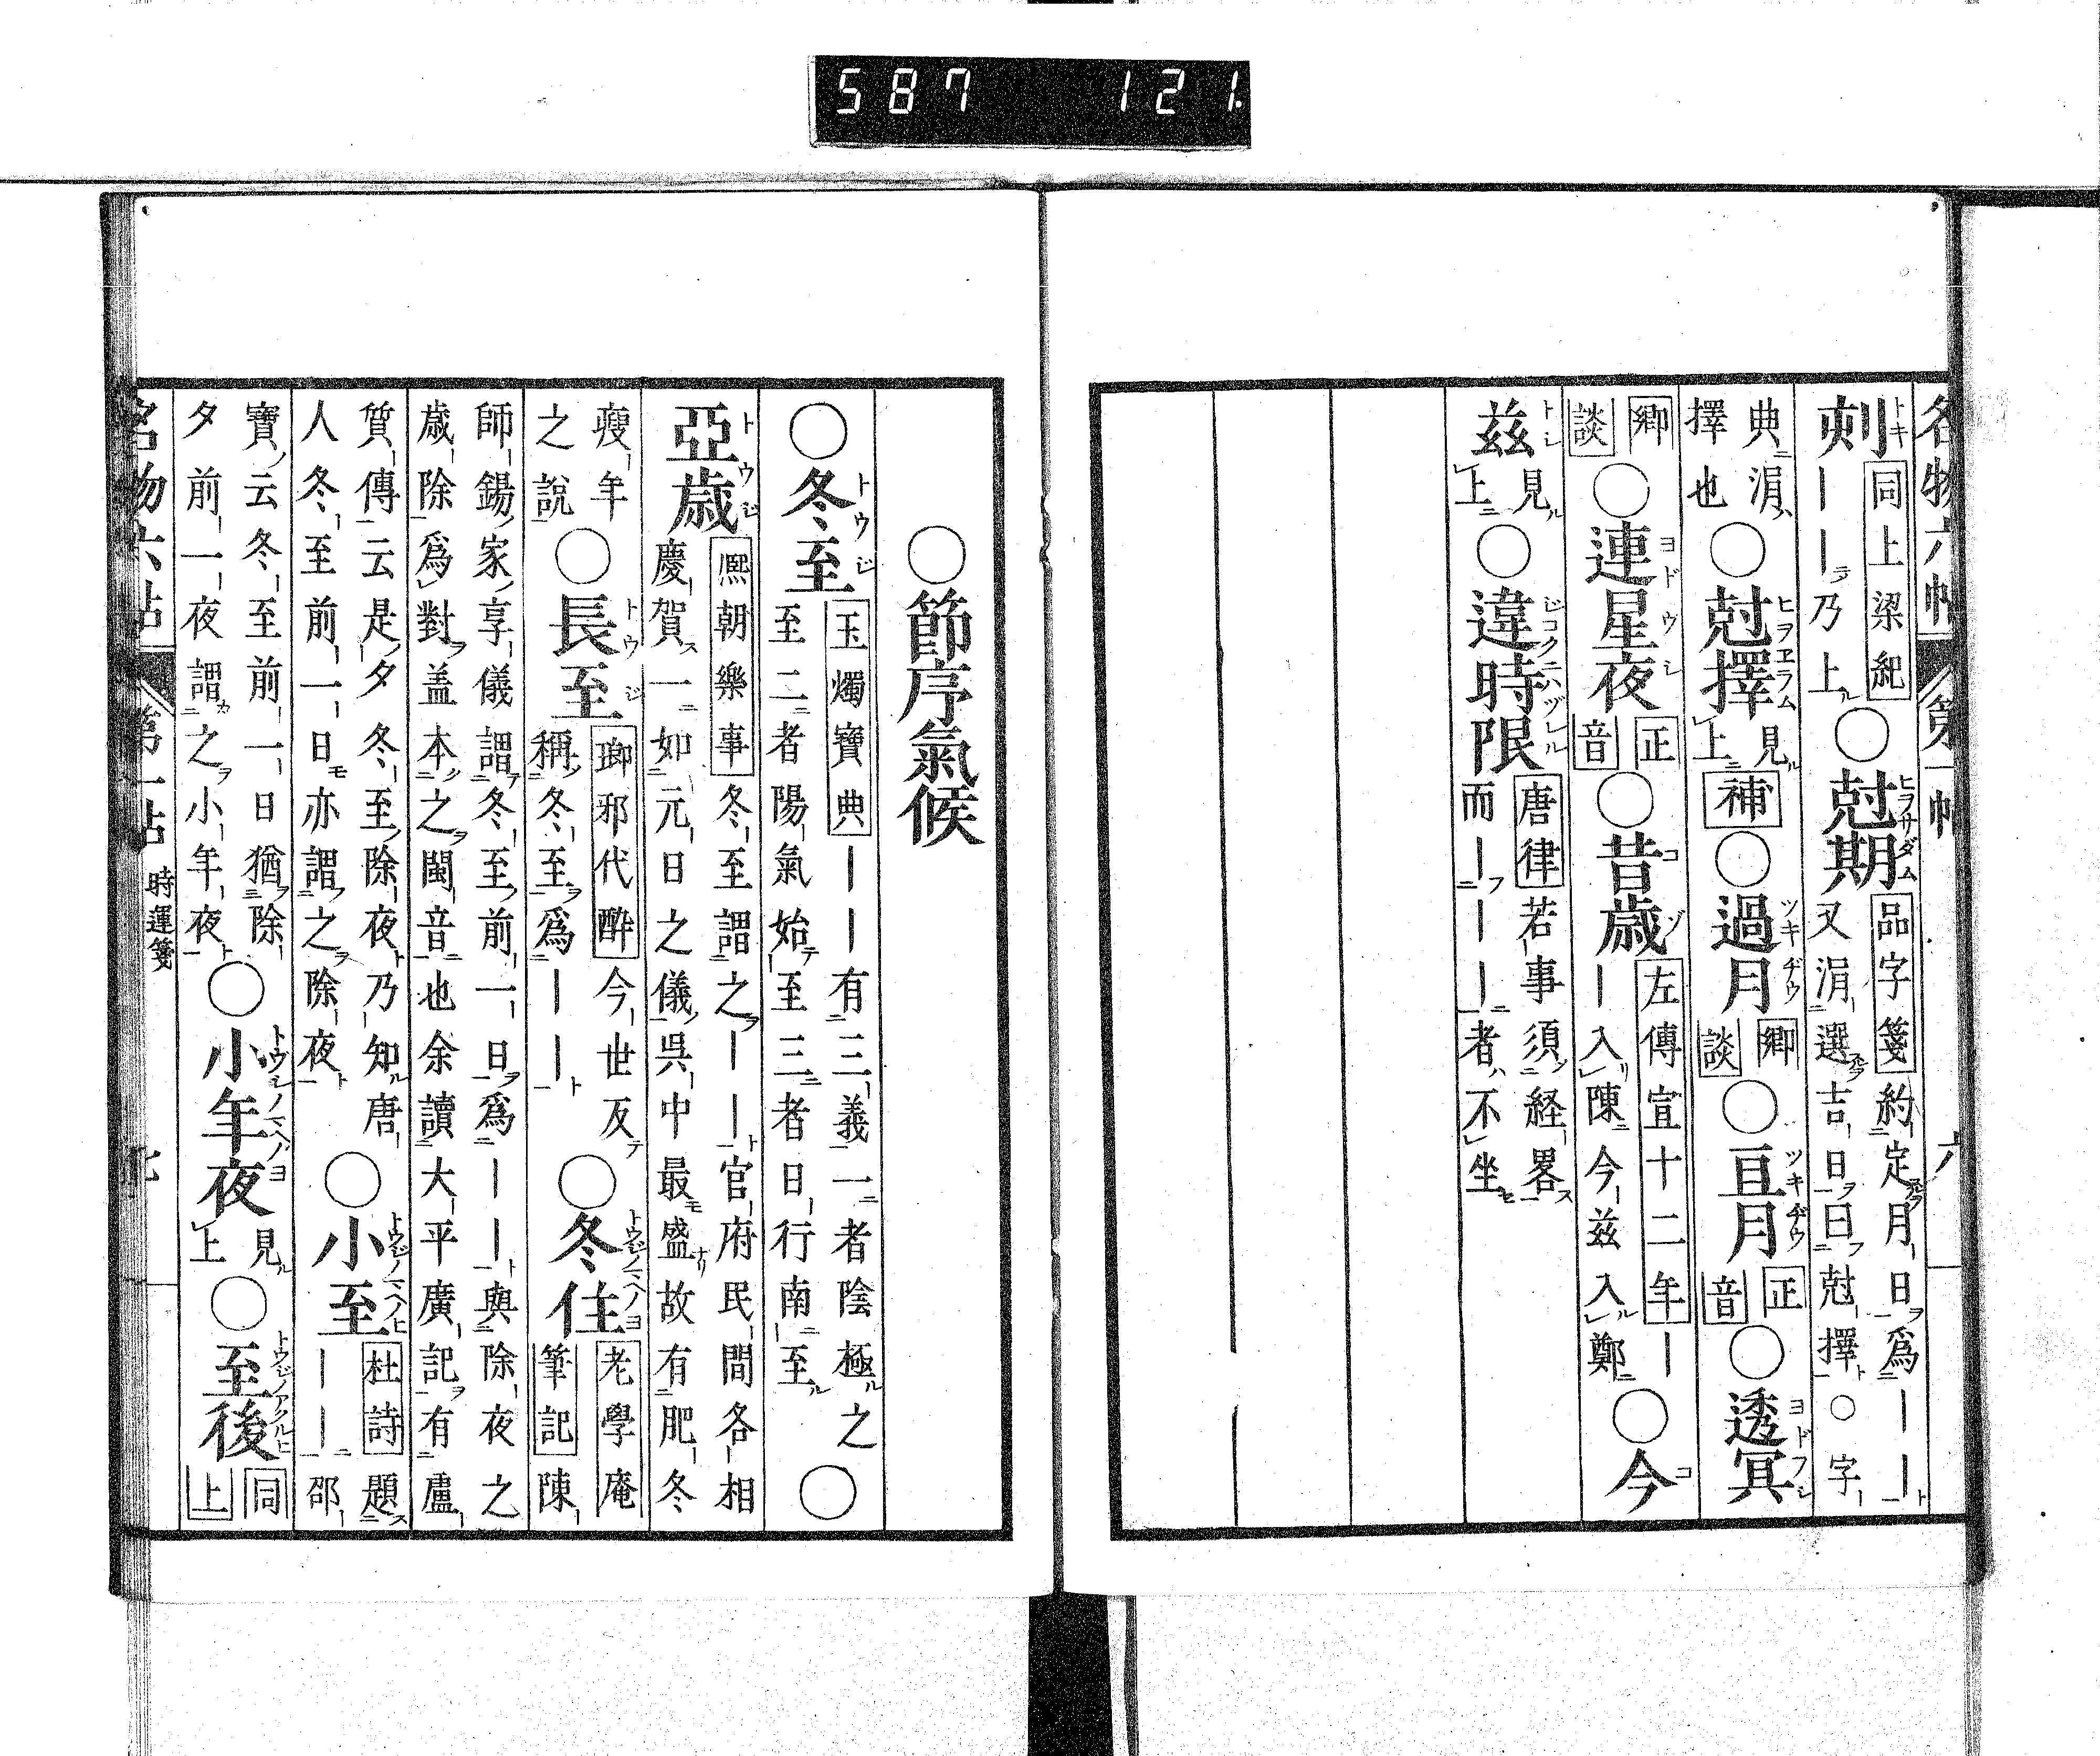 587 121.
名物六帖 第一帖 六
刻 同上梁紀 ｜｜乃上 ○尅期 品字箋 約定月日爲｜｜
又涓選吉日曰尅擇○字
典涓
擇也 ○尅擇 見上 補 ○過月 鄉談 ○亘月 正音 ○透冥
鄉談 ○連星夜 正音 ○昔歲 左傳宣十二年 ｜
｜入陳今茲入鄭 ○今
茲 見上 ○違時限 唐律 若事須経畧
而｜｜｜者不坐
○節序氣候
○冬至 玉燭寶典 ｜｜有三義一者陰極之
至二者陽氣始至三者日行南至 ○
亞歲 熈朝樂事 冬至謂之｜｜官府民間各相
慶賀一如元日之儀吳中最盛故有肥冬
瘦年
之說 ○長至 瑯邪代醉 今世反
稱冬至爲｜｜ ○冬住 老學庵筆記 陳
師錫家享儀謂冬至前一日爲｜｜與除夜之
歲除爲對盖本之閩音也余讀大平廣記有盧
質傳云是夕冬至除夜乃知唐
人冬至前一日亦謂之除夜 ○小至 杜詩 題
｜｜邵
寶云冬至前一日猶除
夕前一夜謂之小年夜 ○小年夜 見上 ○至後 同上
名物六帖 第一帖 時運箋 七